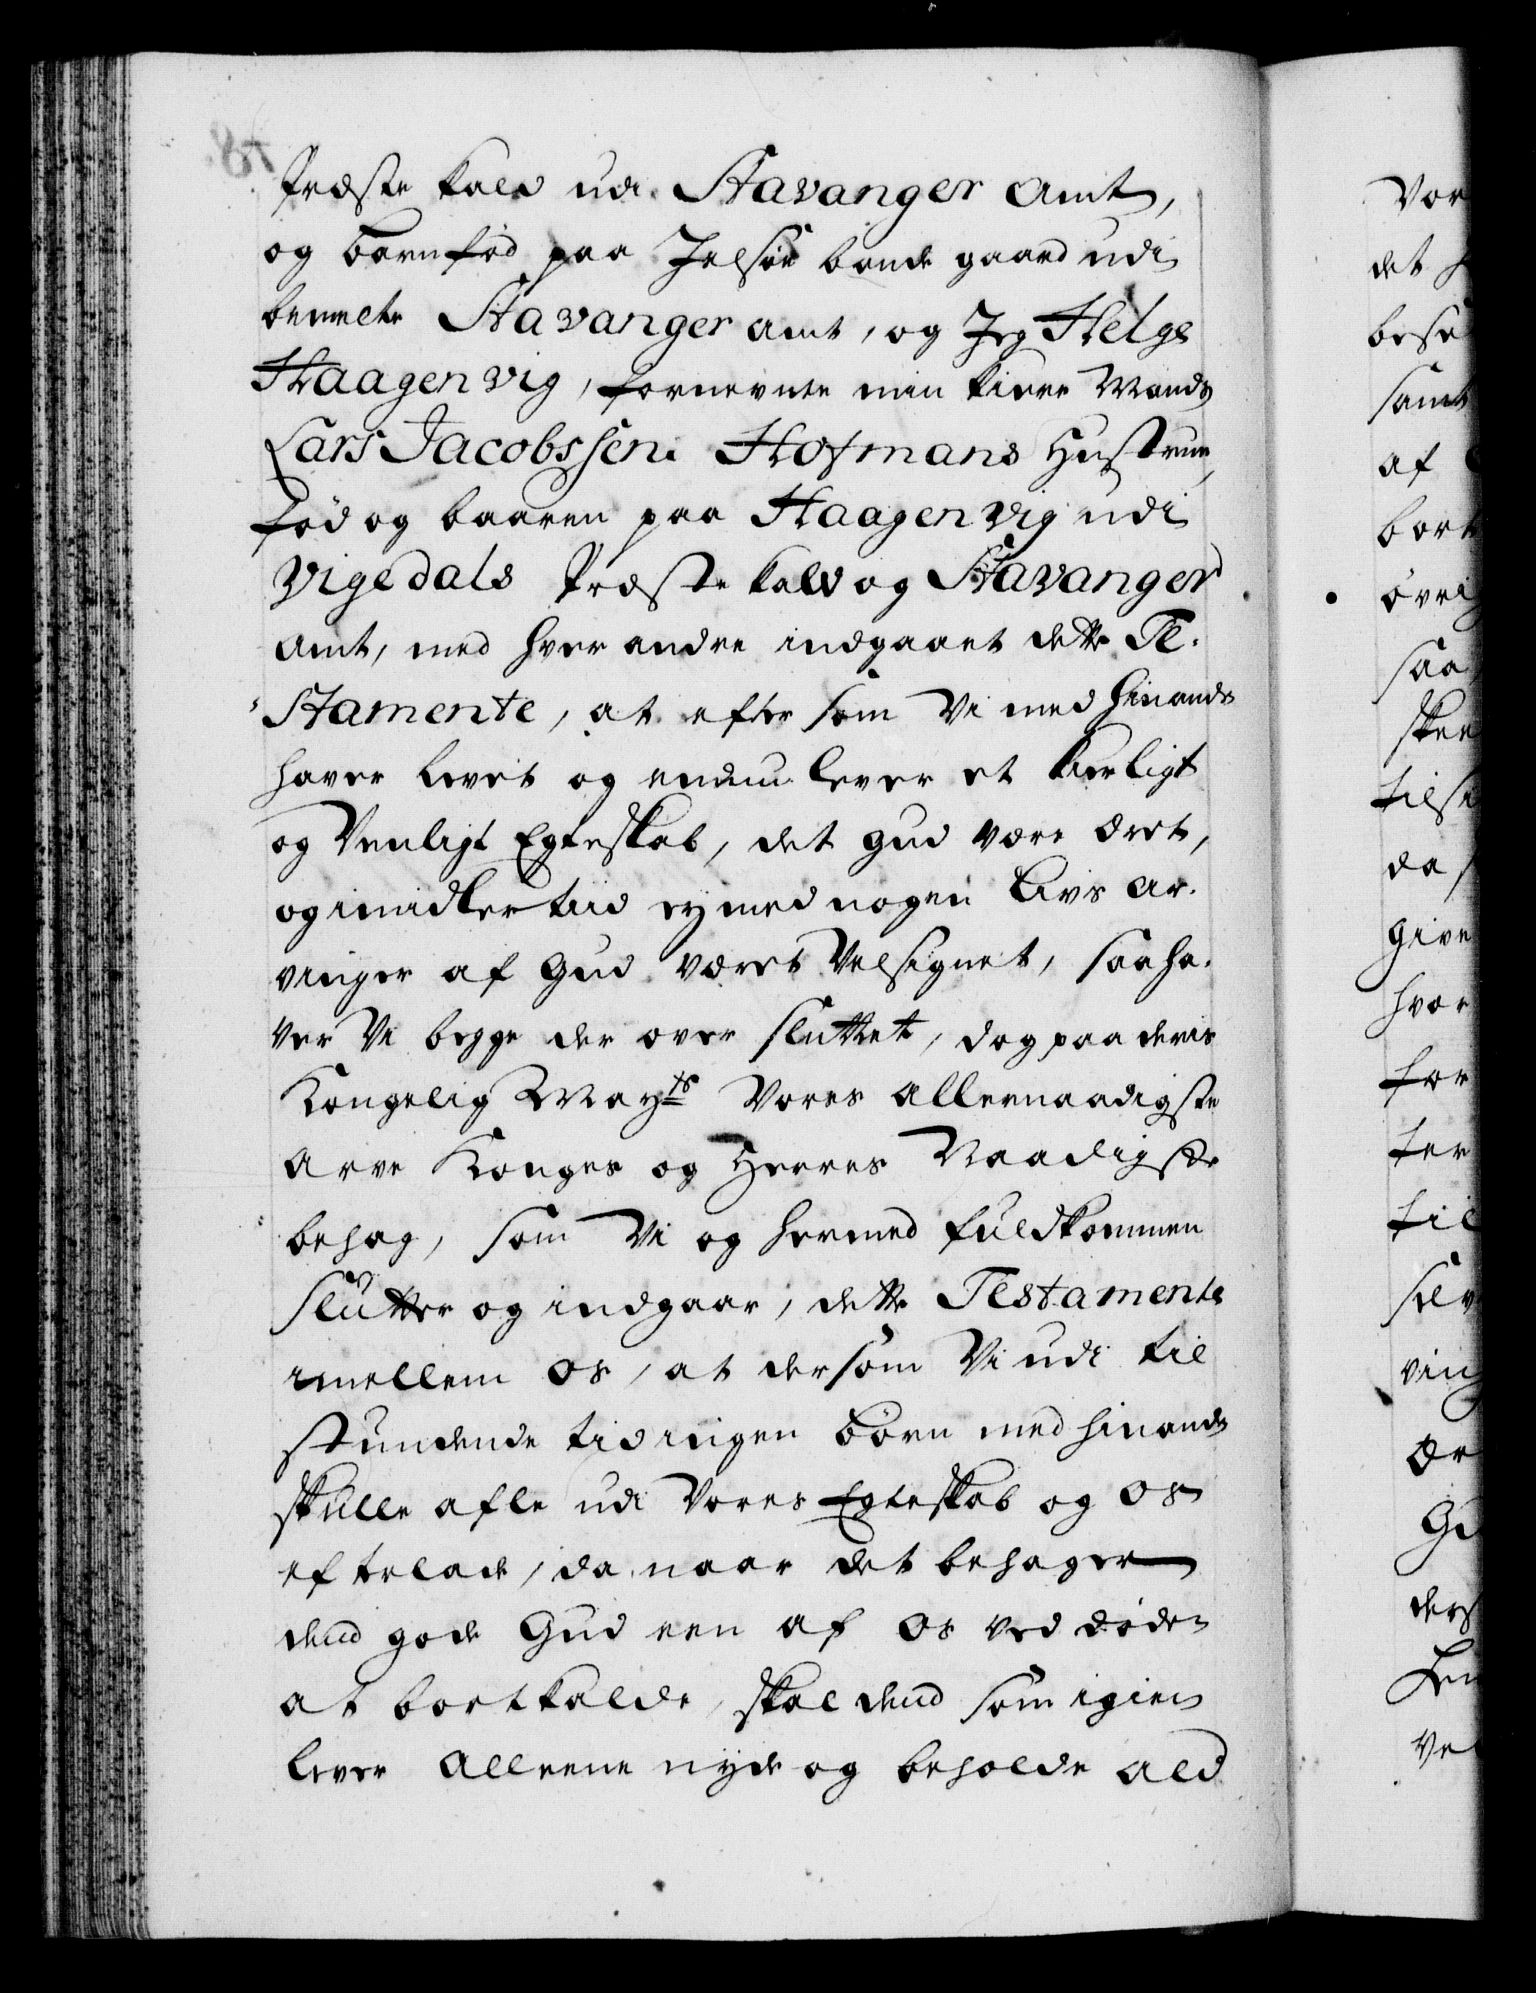 Præste kald udi Stavanger Amt,
og barnfød paa Jelsøe bonde gaard udi
bemelte Stavanger amt, og Jeg Helge
Haagenvig, fornevnte min kiere Mands
Lars Jacobssen Hofmans Hustrue,
fød og baaren paa Haagenvig udi
Vigedals Præste kald og Stavanger
Amt, med hver andre indgaaet dette Te-
stamente, at efter som Vi med hinanden
haver levet og endnu lever et kierligt
og Venligt Egteskab, det Gud være æret,
og imidlertiid ey med nogen Livs Ar-
vinger af Gud været Velsignet, saa ha-
ver Vi begge der over sluttet, dog paa deris
Kongelig Mayts Vores allernaadigste
Arve Konges og Herres Naadigste
behag, som Vi og hermed fuldkommen
slutter og indgaar, dette Testamente
imellem os, at dersom Vi udi til
stundende tid ingen Børn med hinanden
skulle afle udi Vores Egteskab og os
efterlade, da naar det behager
dend gode Gud een af os ved døden
at bortkalde, skal dend som igien
lever Alleene nyde og beholde ald